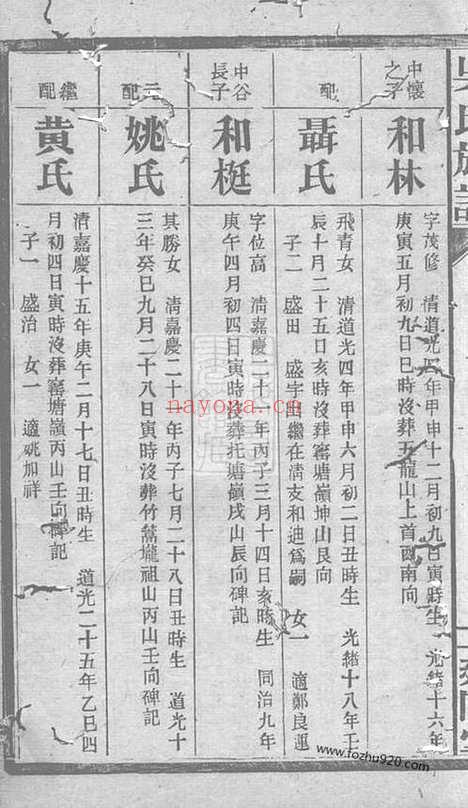 氏族譜
中懷之子
和林
字茂修 清道光四年甲申十二月初九日寅時生 光緒十六年
庚寅五月初九日巳時沒葬五龍山上首酉南向
配
聶氏
飛青女 清道光四年甲申六月初二日丑時生 光緒十八年壬
辰十月二十五日亥時沒葬窰塘嶺坤山艮向
子二 盛田 盛宇出繼在淸支和迪爲嗣 女一 適鄭良運
中谷長子
和梃
字位高 清嘉慶二十一年丙子三月十四日亥時生 同治九年
庚午四月初四日寅時沒葬托塘嶺戌山辰向碑記
元配
姚氏
其勝女 清嘉慶二十一年丙子七月二十八日丑時生 道光十
三年癸巳九月二十八日寅時沒葬竹蒿壠祖山丙山壬向碑記
繼配
黃氏
清嘉慶十五年庚午二月十七日丑時生 道光二十五年乙巳四
月初四日寅時沒葬窰塘嶺丙山壬向碑記
子一 盛治 女一 適姚加祥
nayona.cn
www.fozhu920.com